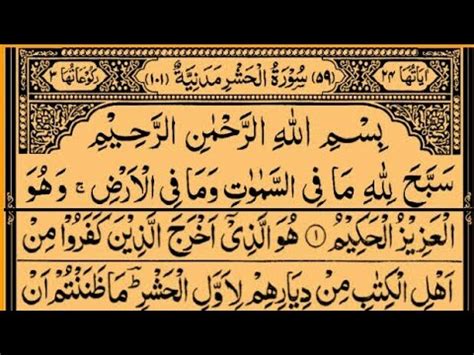 اٰيَاتُهَا ٢٤ (٥٩) سُوْرَةُ الْحَشْرِ مَدَنِيَّةٌ (١٠١) رُكُوْعَاتُهَا ٣
بِسْمِ اللهِ الرَّحْمٰنِ الرَّحِيْمِ
سَبَّحَ لِلّٰهِ مَا فِى السَّمٰوٰتِ وَمَا فِى الْاَرْضِ ۚ وَهُوَ
الْعَزِيْزُ الْحَكِيْمُ ١ هُوَ الَّذِىْٓ اَخْرَجَ الَّذِيْنَ كَفَرُوْا مِنْ
اَهْلِ الْكِتٰبِ مِنْ دِيَارِهِمْ لِاَوَّلِ الْحَشْرِ ؕ مَا ظَنَنْتُمْ اَنْ